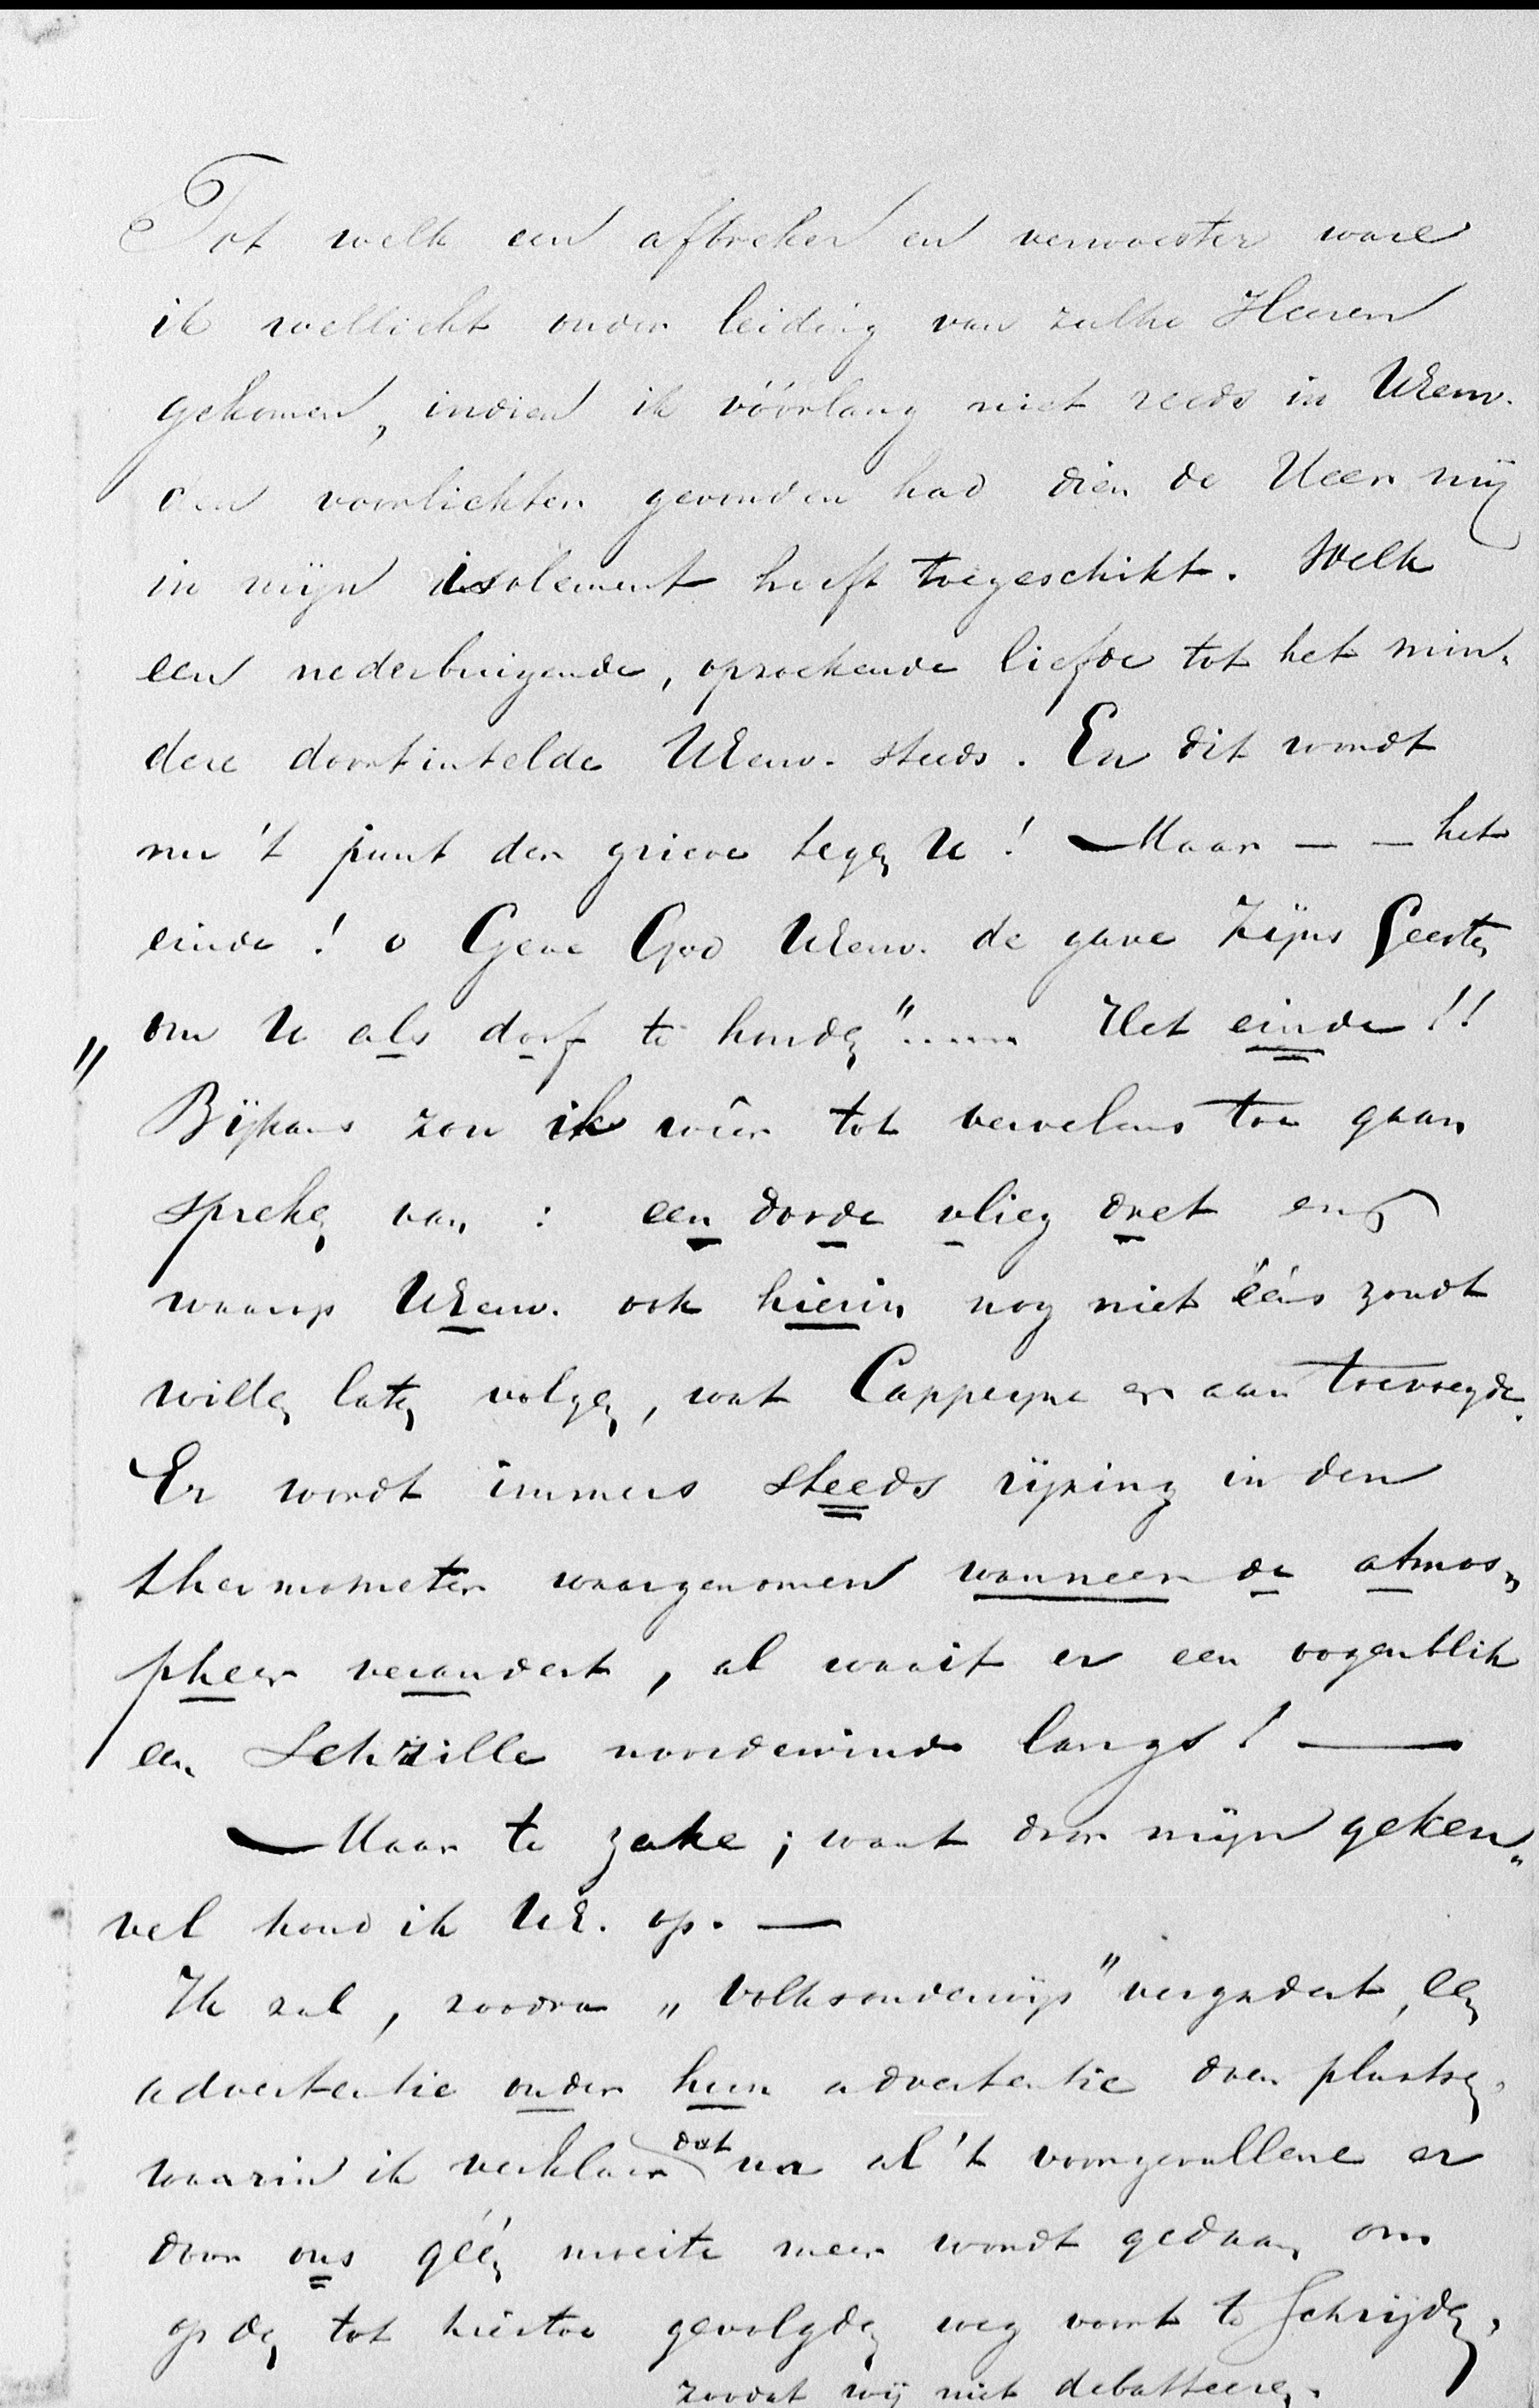 Tot welk een afbreker en verwoester ware
ik wellicht onder leiding van zulke Heeren
gekomen, indien ik vóórlang niet reeds in UEew.
den voorlichter gevonden had dien de Heer mij
in mijn isolement heeft toegeschikt. Welk
een nederbuigende, opzoekende liefde tot het min„
dere doortintelde UEew. steeds. En dit wordt
nu 't punt der grieve tegen U! Maar — — het
einde! o Geve God UEew. de gave Zijns Geestes
om U als dorf te houden"..... Het einde!!
„
Bijkans zou ik wêer tot vervelens toe gaan
spreken van: een dorde vlieg dret enz
waarop UEew. ook hierin nog niet ééns zoudt
willen laten volgen, wat Cappeyne er aan toevoegde.
Er wordt immers steeds rijzing in den
thermometer waargenomen wanneer de atmos„
pheer verandert, al waait er een oogenblik
een noordewind langs! —
Maar te zake; want door mijn geken„
vel houd ik UE. op. —
Ik zal, zoodra „Volksonderwijs" vergadert, een
advertentie onder hun advertentie doen plaatsen,
waarin ik verklaar dat na al 't voorgevallene er
door ons géén moeite meer wordt gedaan om
op den tot hiertoe gevolgden weg voort te schrijden,
zoodat wij niet debatteeren.